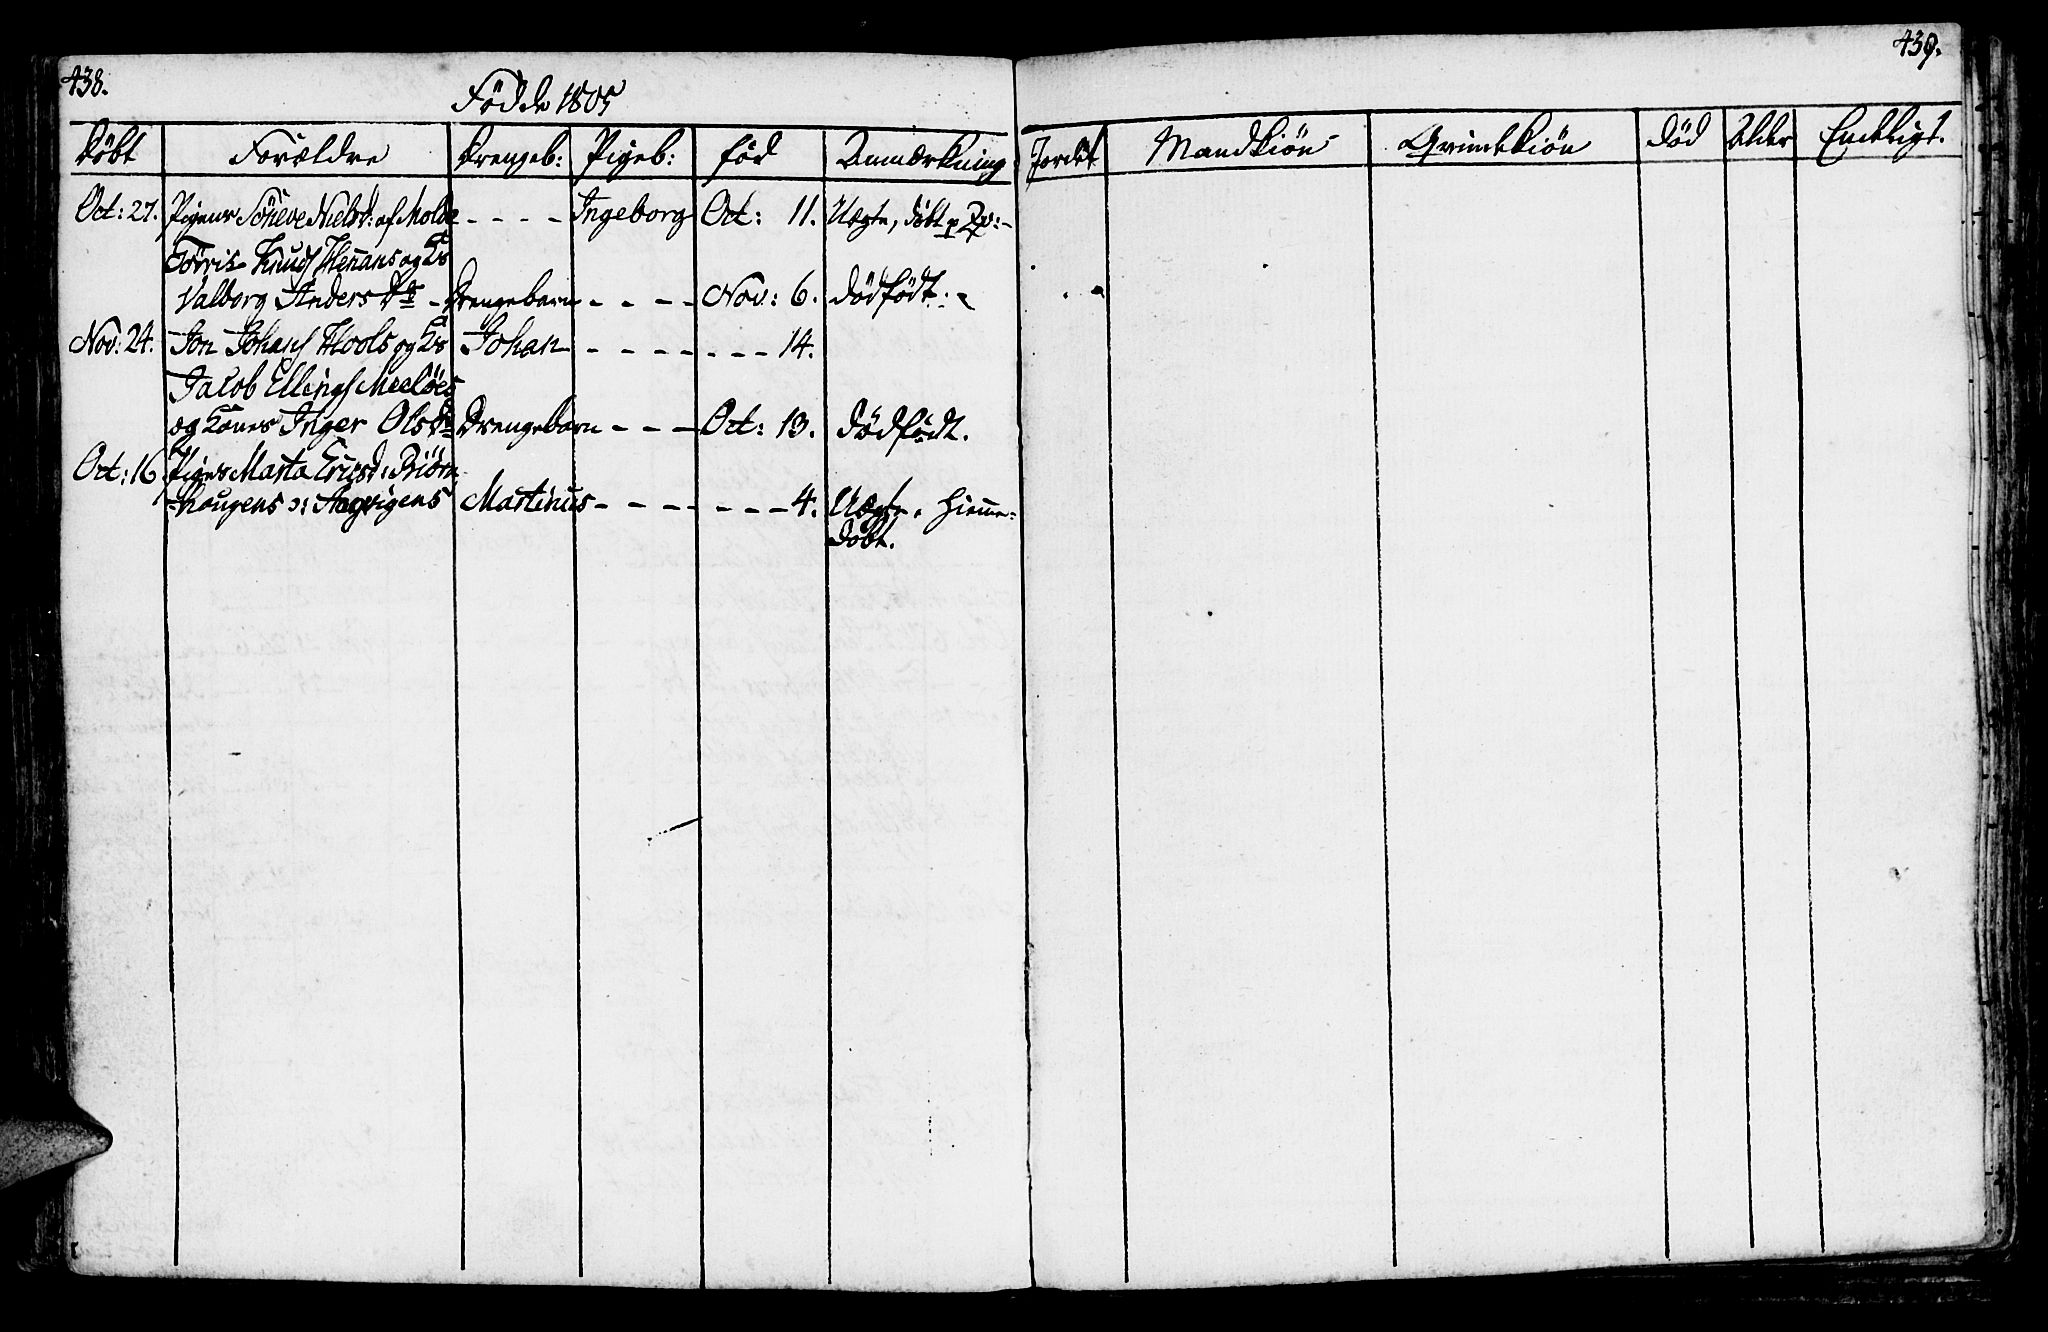 438.
Födde 1805
Döbt Forældre Drengeb: Pigeb: född Anmærkning
Oct: 27. Pigens Nielsd: af Molde - - - - Ingeborg Oct: 11. Uægte, döbt
Torris Knuds og Ks
Valborg Anders Dr - Drengebarn - - - - Nov: 6. dödfödt.
Nov: 24. Jon Johans Hools og Ks Johan - - - - - - - 14.
Jacob Ellings
og Kones Inger Olsdr Drengebarn - - - Oct: 13. dödfödt.
Oct: 16 Pigens Marta Ericsd: Biörn
Martinus - - - - - - - 4. Uægte. Hieme-
döbt.
439.
Jordet Mandkiön Qvindekiön död Alder Endeligt.